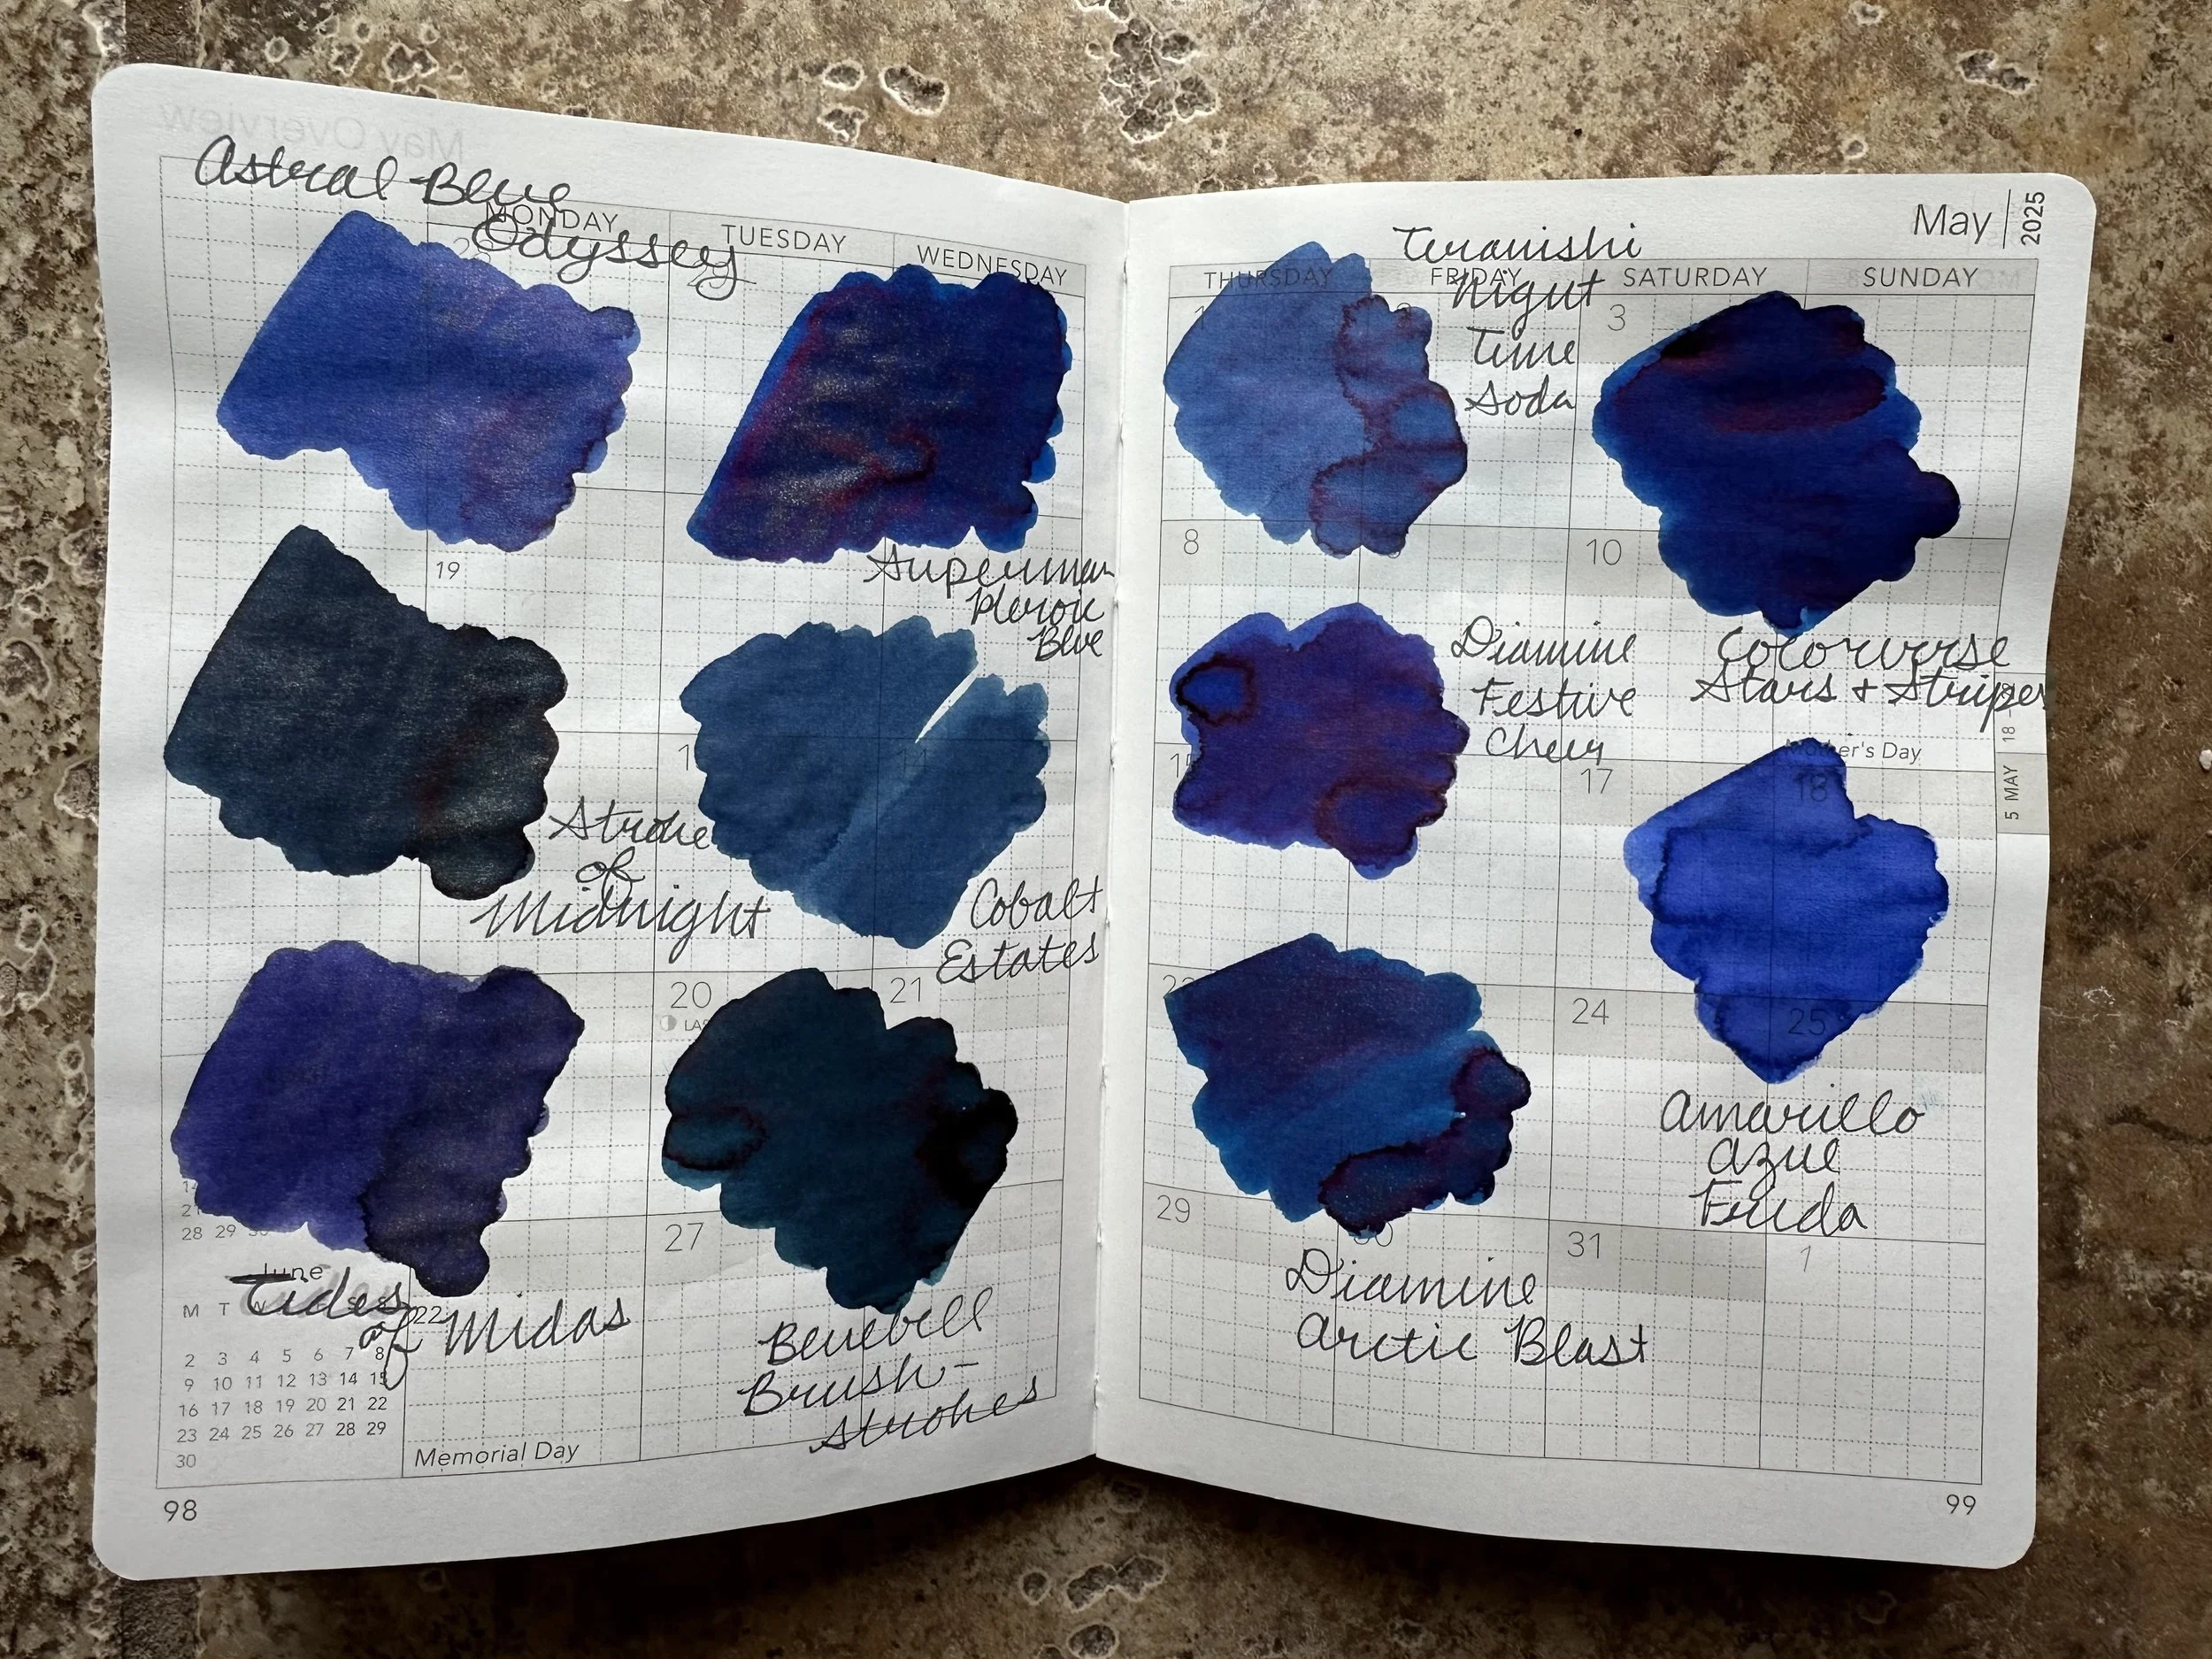 May Overview
Astral Blue
Odyssey
MONDAY
TUESDAY
WEDNESDAY
19
Superman
Heroic
Blue
Stroke
of
Midnight
Cobalt
Estates
20
21
27
28 29 30
June
Tides
of Midas
M T
2 3 4 5 6 7 8
9 10 11 12 13 14 15
16 17 18 19 20 21 22
23 24 25 26 27 28 29
30
Memorial Day
Bluebell
Brush-
strokes
98
May
2025
THURSDAY
FRIDAY
SATURDAY
SUNDAY
Teranishi
Night
Time
Soda
1
3
8
10
Diamine
Festive
Cheer
Colorverse
Stars + Stripes
Mother's Day
5 MAY 18
17
18
24
25
Amarillo
Azul
29
30
31
1
Diamine
Arctic Blast
99